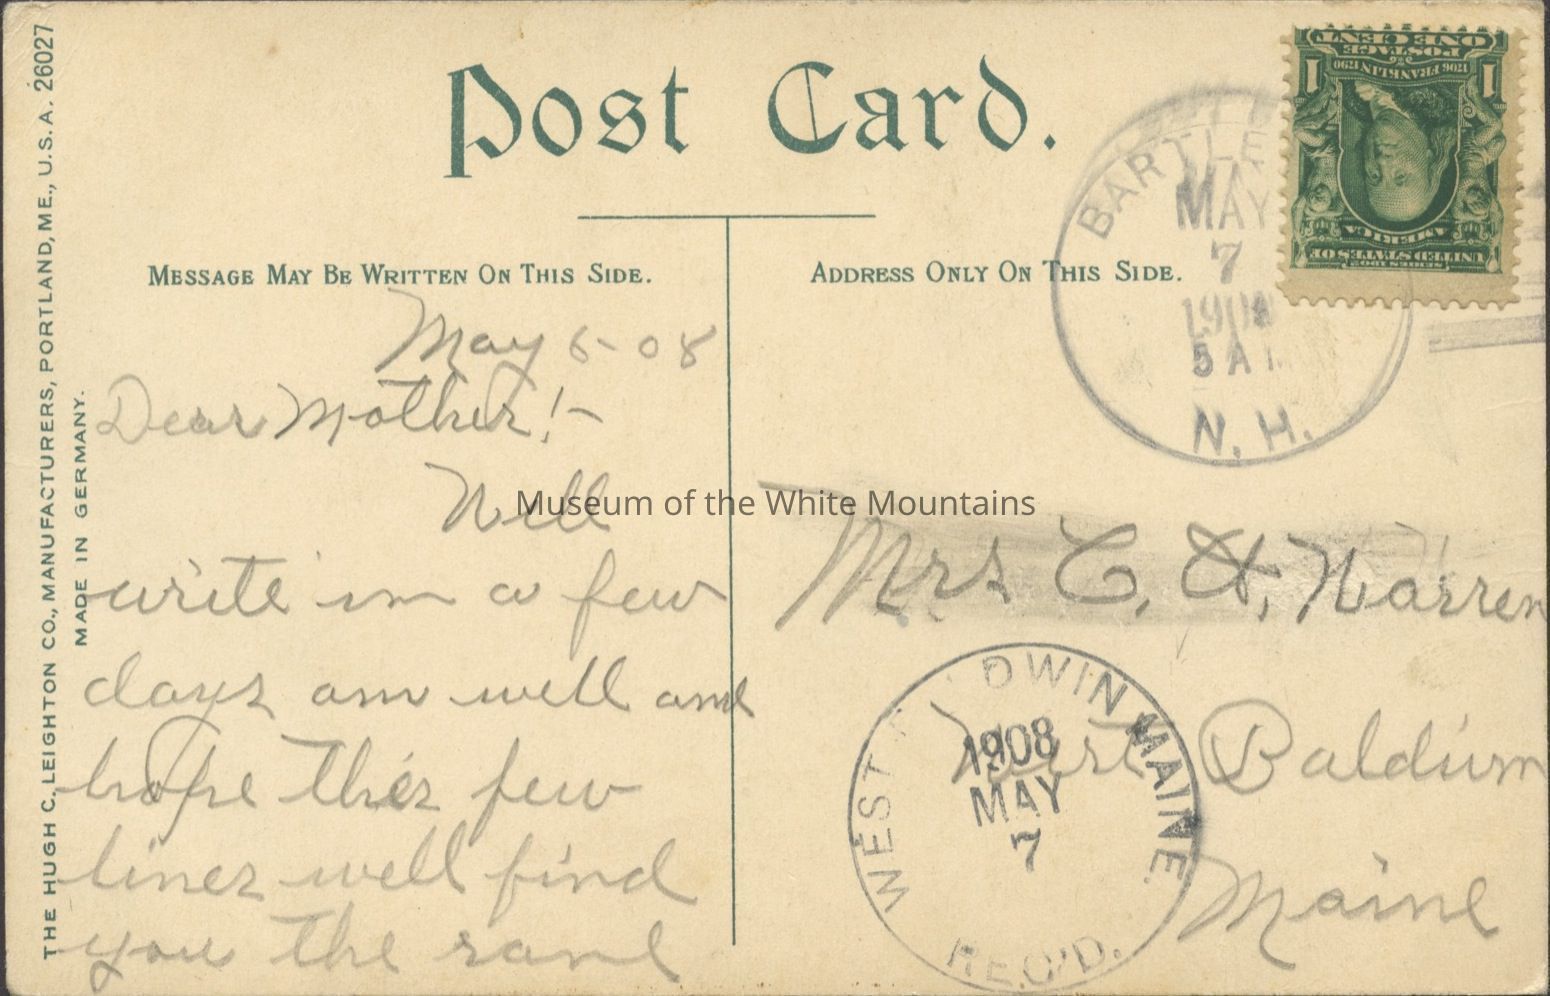 THE HUGH C. LEIGHTON CO., MANUFACTURERS, PORTLAND, ME., U.S.A. 26027
MADE IN GERMANY.
Post Card.
MESSAGE MAY BE WRITTEN ON THIS SIDE.
May 6-08
Dear Mother!-
Will
write in a few
days am well and
hope thes few
lines well find
you the same
ADDRESS ONLY ON THIS SIDE.
ONE CENT
POSTAGE
1706 FRANKLIN 1790
1 1
AMERICA
UNITED STATES OF
SERIES 1902
BARTLE
MAY
7
1908
5 A
N. H.
Mrs C. H. Warren
West Baldwin
Maine
WEST DWIN MAINE.
1908
MAY
7
REC'D.
Museum of the White Mountains